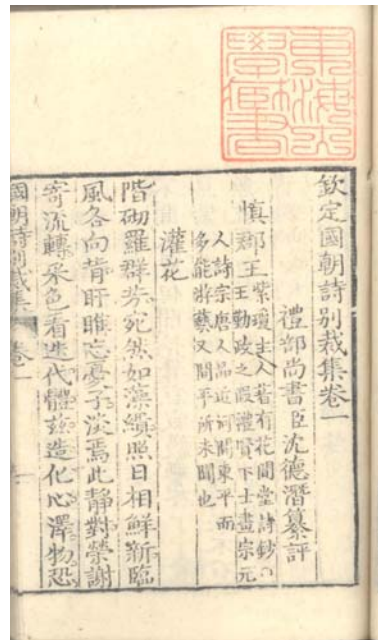 東海大
學書
欽定國朝詩別裁集卷一
禮部尚書臣沈德潛纂評
慎郡王
紫瓊主人著有花間堂詩鈔○
王勤政之暇禮賢下士畫宗元
人詩宗唐人品近河間東平而
多能游藝又間平所未聞也
灌花
階砌羅群芳宛然如藻繢照日相鮮新臨
風各向背盱睢忘憂子淡焉此靜對榮謝
寄流轉采色看迭代體茲造化心澤物恐
國朝詩別裁集 卷一